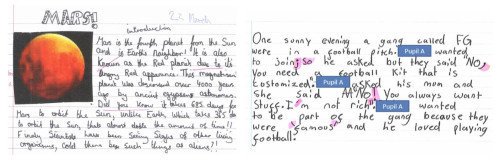 MARS!
22 March
Introduction
Mars is the fourth planet from the Sun
and is Earth's neighbour! It is also
known as the Red planet due to its
Angry Red appearance. This magnificent
planet was discovered over 4000 years
ago by ancient egyptian astronomers.
Did you know it takes 685 days for
Mars to orbit the sun, unlike Earth which takes 365 days
to orbit the Sun, that almost doubles the amount of time!!
Finally Scientists have been seeing Signs of other living
organisms, could there be such things as aliens?!
One sunny evening a gang called FG
were in a football pitch. Pupil A wanted
to join; so he asked but they said "No,
You need a football kit that is
costomized." Pupil A asked his mum and
She said "No! You always want
Stuff. I m not rich" Pupil A wanted
to be part of the gang because they
were famous and he loved playing
football.